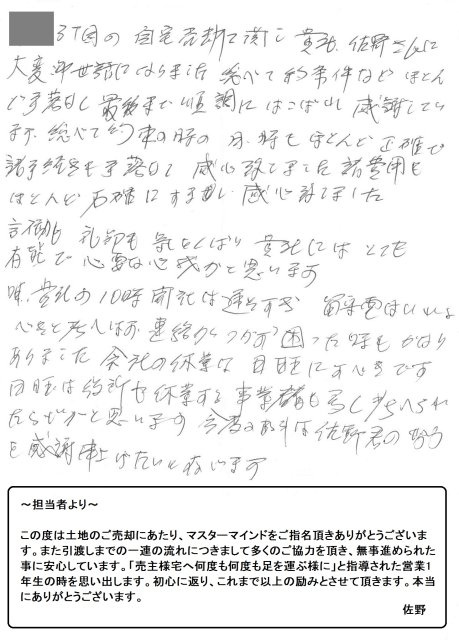 3丁目の自宅売却に関し貴社佐野さんに
大変御世話になりました 総べて約条件などほとん
ど手落なし最後まで順調にはこばれ感謝してい
ます。総べて約束の時の日時もほとんど正確で
諸手続きも手落なく感心致しました 諸費用も
ほとんど正確にすすめ感心致しました
言動も礼節も気をくばり貴社にはとても
有能で必要な
貴社の10時開社は遅すぎ 留守電はいいと
連絡がつかず困った時もかなり
ありました 会社の休業は日曜にすべきです
日曜は役所も休業する事業
たらどうかと思います 佐野君の
を感謝申上げたいと存じます
～担当者より～
この度は土地のご売却にあたり、マスターマインドをご指名頂きありがとうございま
す。また引渡しまでの一連の流れにつきまして多くのご協力を頂き、無事進められた
事に安心しています。「売主様宅へ何度も何度も足を運ぶ様に」と指導された営業1
年生の時を思い出します。初心に返り、これまで以上の励みとさせて頂きます。本当
にありがとうございます。
佐野